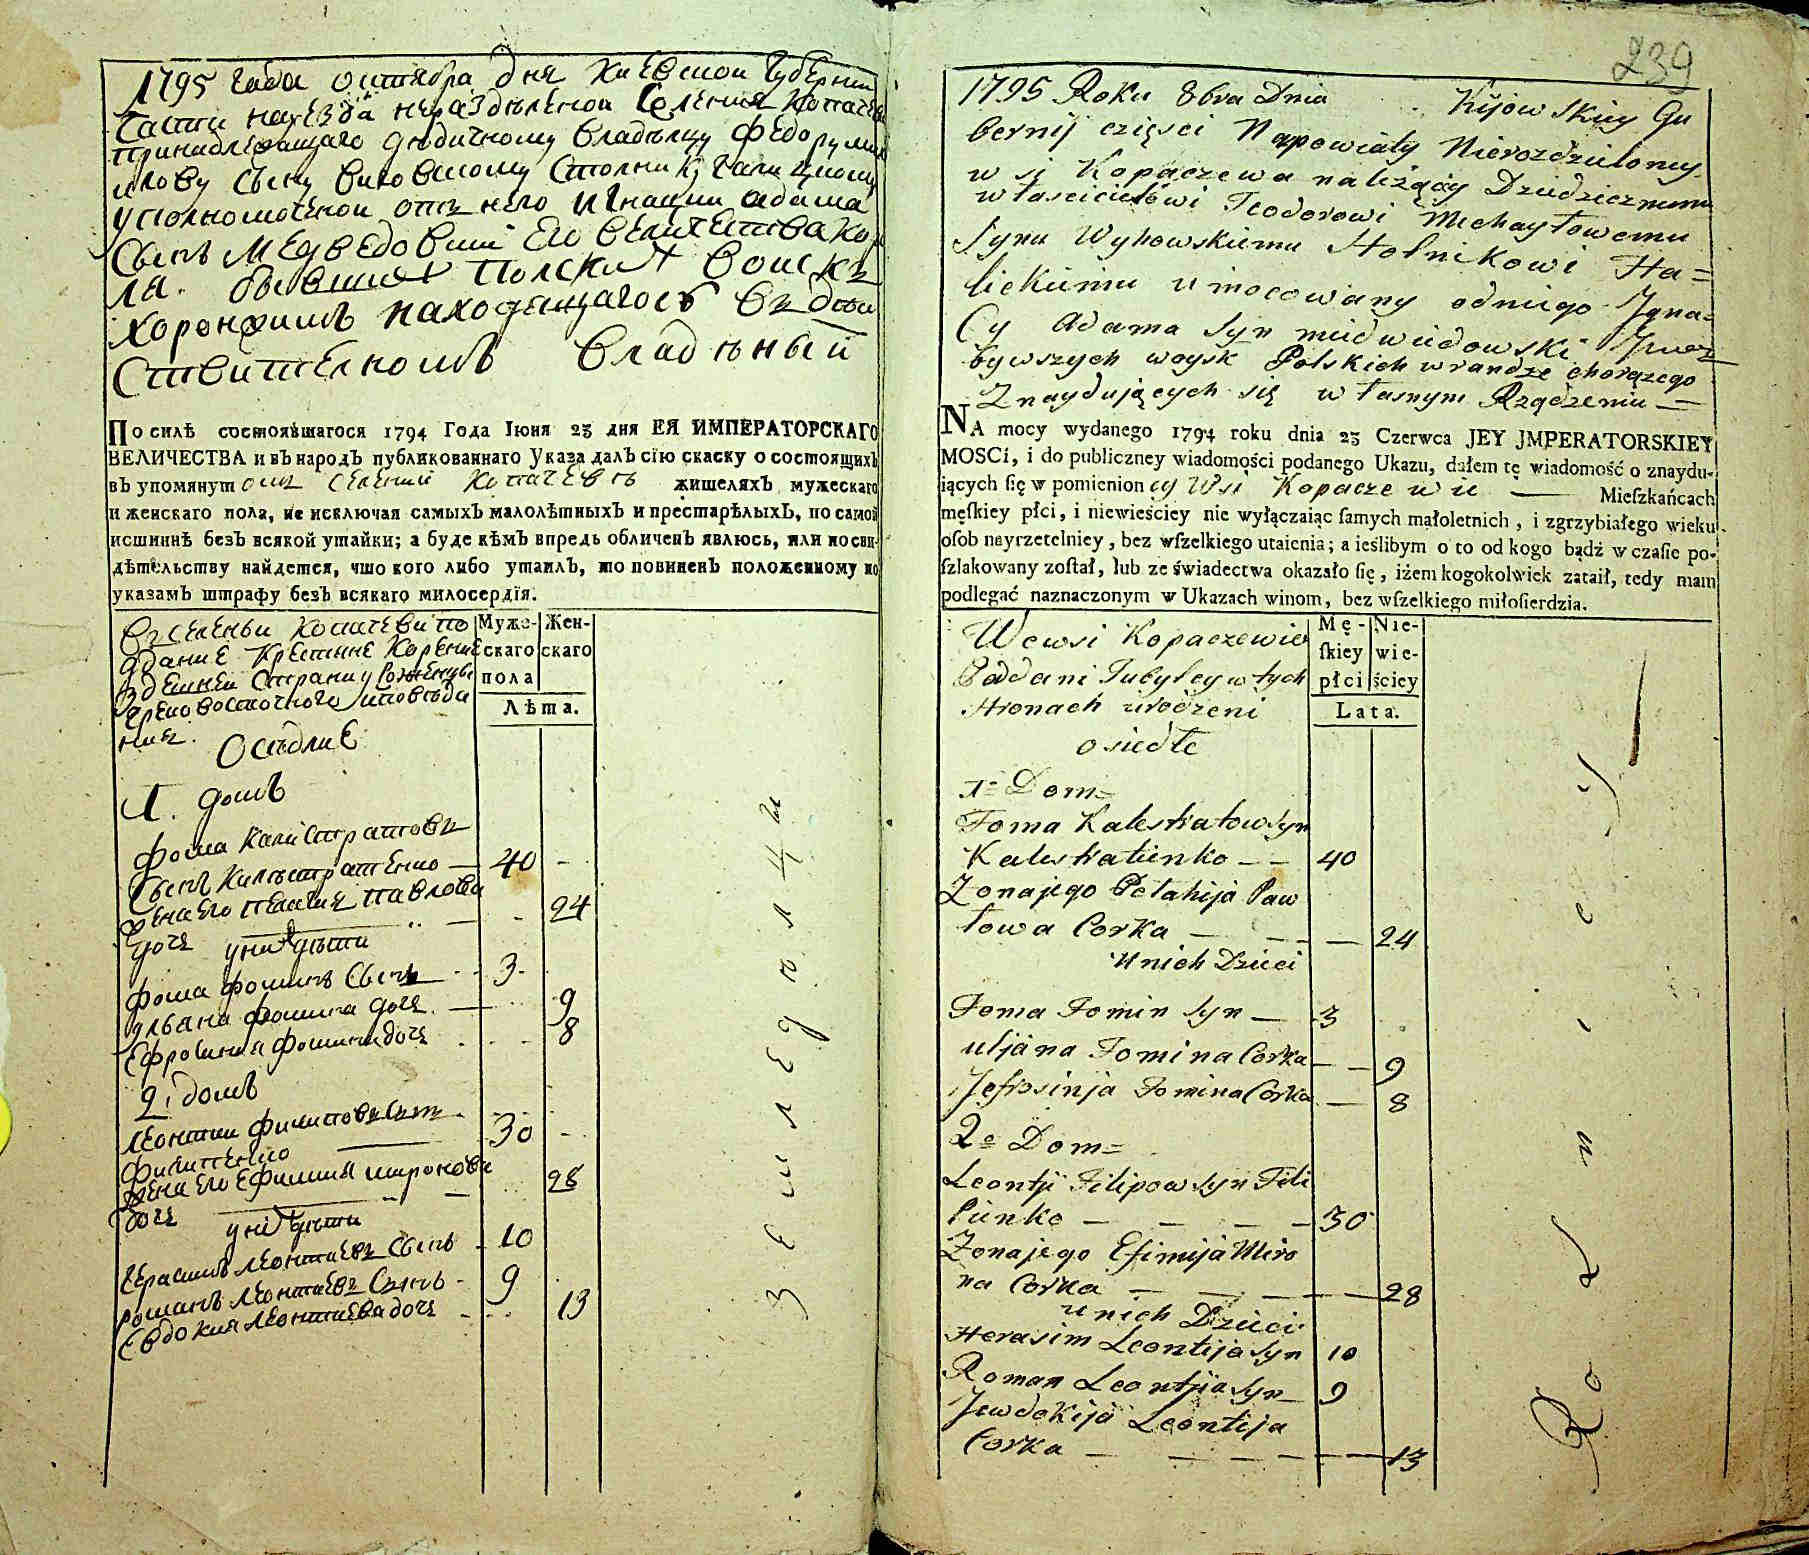 1795 Года октября дня Киевской Губернии
Части на уезда неразделеной Селения Копачева
принадлежащаго дедичному владельцу Федору Михай
лову сыну Виговскому Столнику Галицкому
уполномоченой отъ него Игнации Адама
Сынъ Медведовский Его Величества Коро
ля. бывшихъ Полскихъ Войскъ
Хоронжимъ находящагося въ дей
ствителномъ владѣный
По силѣ состоявшагося 1794 Года Іюня 23 дня ЕЯ ИМПЕРАТОРСКАГО
ВЕЛИЧЕСТВА и въ народъ публикованнаго Указа далъ сію скаску о состоящихъ
въ упомянутомъ Селении Копачевъ жителяхъ мужескаго
и женскаго пола, не исключая самыхъ малолѣтныхъ и престарѣлыхъ, по самой
истиннѣ безъ всякой утайки; а буде кѣмъ впредь обличенъ явлюсь, или по сви-
дѣтельству найдется, что кого либо утаилъ, то повиненъ положенному по
указамъ штрафу безъ всякаго милосердія.
въ селеньи Копачеви по
дание Крестяне Корение
здешней Страни Рожение
Греко восточного исповѣда
ния.
Осѣдлие
Муже-
скаго
Жен-
скаго
пола
Лѣта.
1. домъ
Фома Калистратовъ
Сынъ Калѣстратенко — 40 -
Жена его Пелагия Павлова
дочъ — 24
у них дѣти
Фома Фоминъ Сынъ 3
Ульана Фомина дочъ 9
Ефросиния Фомина дочъ 8
2. домъ
Леонтий Филиповъ Сынъ
Филипенко 30 -
Жена его Ефимия Миронова
дочъ 28
у них дѣти
Герасимъ Леонтиевъ Сынъ 10
Романъ Леонтиевъ Сынъ 9
Евдокия Леонтиева дочъ 13
Земледѣлци
239
1795 Roku 8bra Dnia Kijowskiey Gu
bernij części Napowiaty Nierozdzieloney
wsi Kopaczewa należący Dziedzicznemu
właścicielowi Teodorowi Michayłowemu
Synu Wyhowskiemu Stolnikowi Ha=
lickiemu umocowany odniego Igna=
Cy Adama Syn miedwiedowski Jmoz
bywszych woysk Polskich w randze chorążego
Znaydujących się własnym Rządzeniu —
NA mocy wydanego 1794 roku dnia 23 Czerwca JEY JMPERATORSKIEY
MOSCi, i do publiczney wiadomości podanego Ukazu, dałem tę wiadomość o znaydu-
iących ſię w pomienioney Wsi Kopaczewie — Mieſzkańcach
męſkiey płci, i niewieściey nie wyłączaiąc ſamych małoletnich, i zgrzybiałego wieku
oſob nayrzetelniey, bez wſzelkiego utaienia; a ieślibym o to od kogo bądź w czaſie po-
ſzlakowany zoſtał, lub ze świadectwa okazało ſię, iżem kogokolwiek zataił, tedy mam
podlegać naznaczonym w Ukazach winom, bez wſzelkiego miłoſierdzia.
Wewsi Kopaczewie
Poddani Tubylcy w tych
Stronach urodzeni
osiedle
Mę-
ſkiey
płci
Nie-
wie-
ściey
Lata.
1= Dom=
Foma Kalestratow Syn
Kalestratienko — — 40
Zona jego Pelahija Paw
łowa Corka — — — 24
U nich Dzieci
Foma Fomin Syn — 3
Uljana Fomina Corka — — 9
Jefrosinja Fomina Corka — 8
2= Dom=
Leontji Filipow Syn Fili
pienko — — — — 30
Zona jego Efimija Miro
na Corka — — — — 28
u nich Dzieci
Herasim Leontija Syn 10
Roman Leontjia Syn 9
Jewdokija Leontija
Corka — — — — 13
Rolnicy